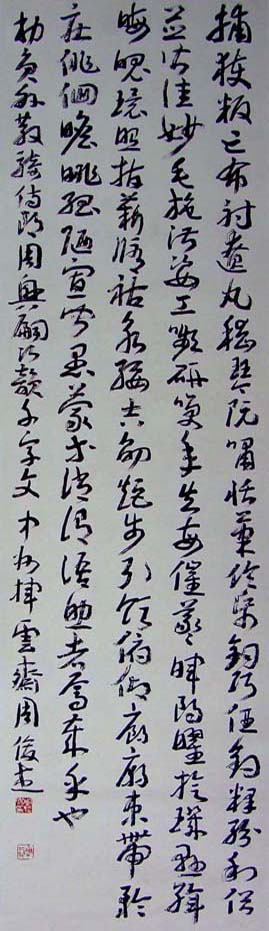 捕獲叛亡布射遼丸嵇琴阮嘯恬筆倫紙鈞巧任釣釋紛利俗
並皆佳妙毛施淑姿工顰研笑年矢每催羲暉朗曜旋璣懸斡
晦魄環照指薪修祜永綏吉劭矩步引領俯仰廊廟束帶矜
莊徘徊瞻眺孤陋寡聞愚蒙等誚謂語助者焉哉乎也
勑員外散騎侍郎周興嗣次韻千字文 中州揮雲齋周俊杰